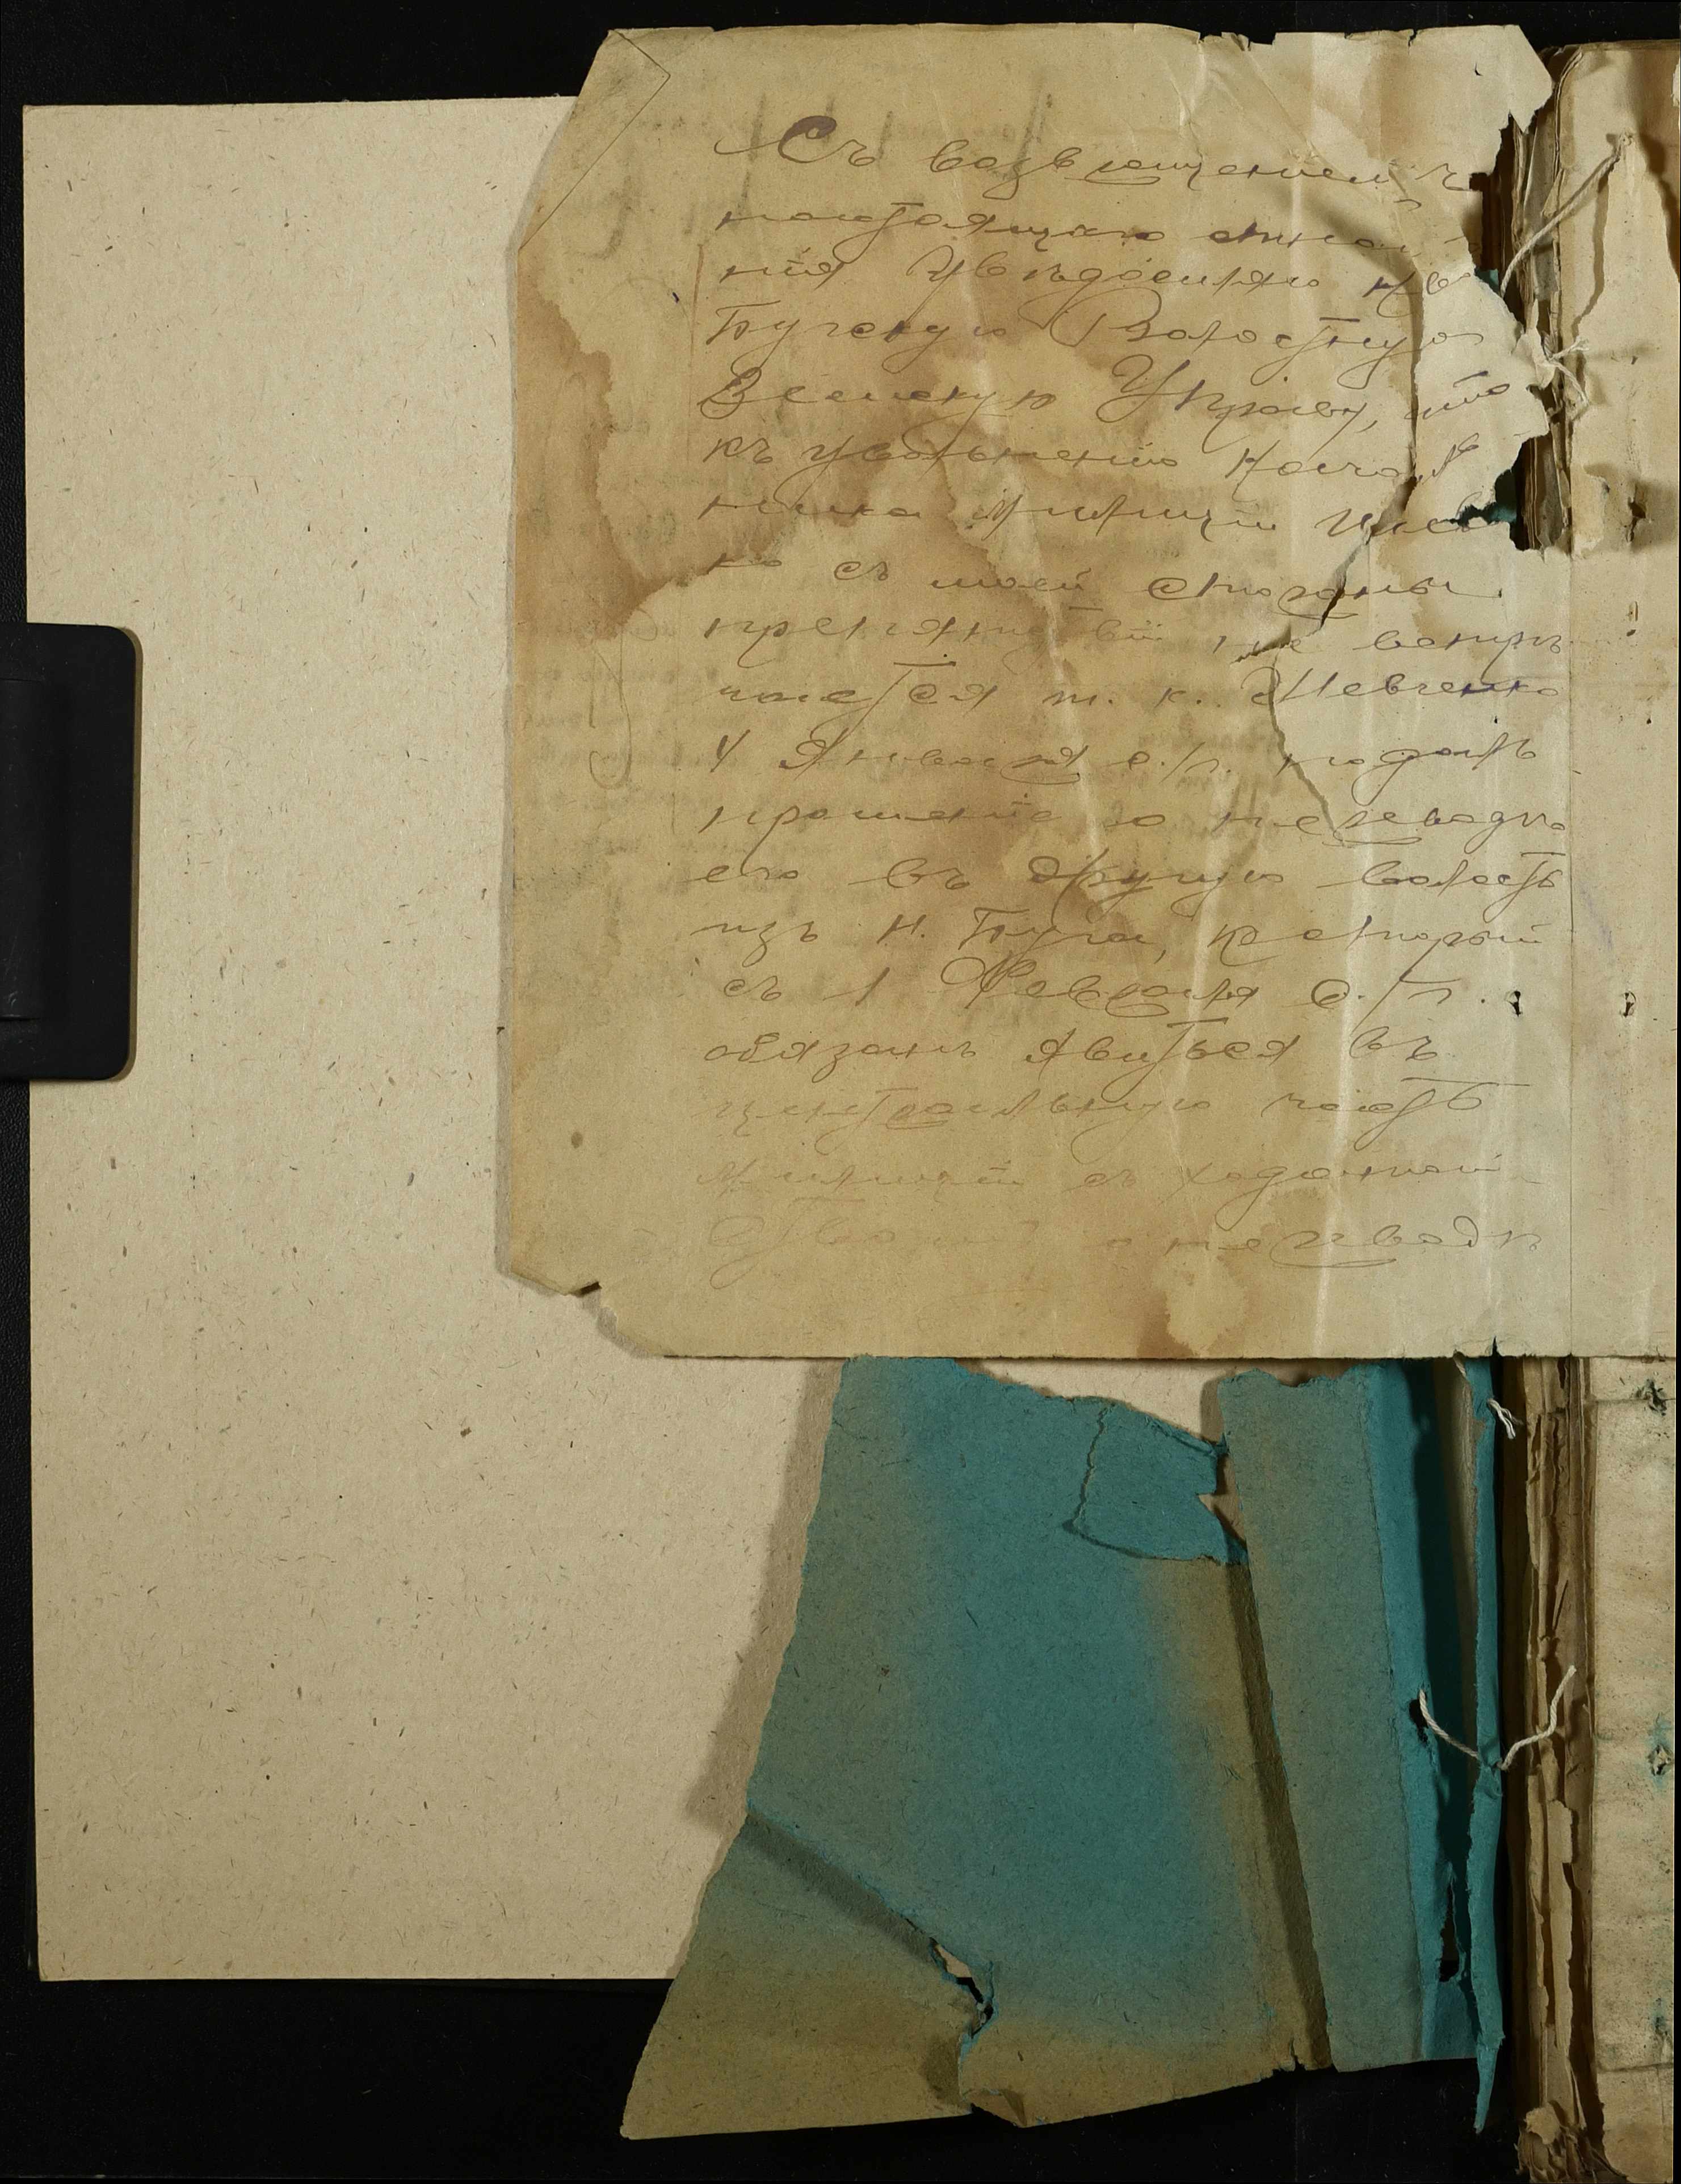 Съ возвращеніемъ
настоящаго отнош
нія увѣдомляю Ново
Бугскую Волостную
Земскую Управу, что
къ увольненію Началь
ника Милиціи Шевчен
ко съ моей стороны
препятствій не встрѣ
чается т. к. Шевченко
4 Января с./г. подалъ
прошеніе о переводѣ
его въ другую волость
изъ Н. Буга, который
съ 1 Февраля с./г.
обязанъ явиться въ
центральную часть
Милиціи съ ходатай
ствомъ о переводѣ